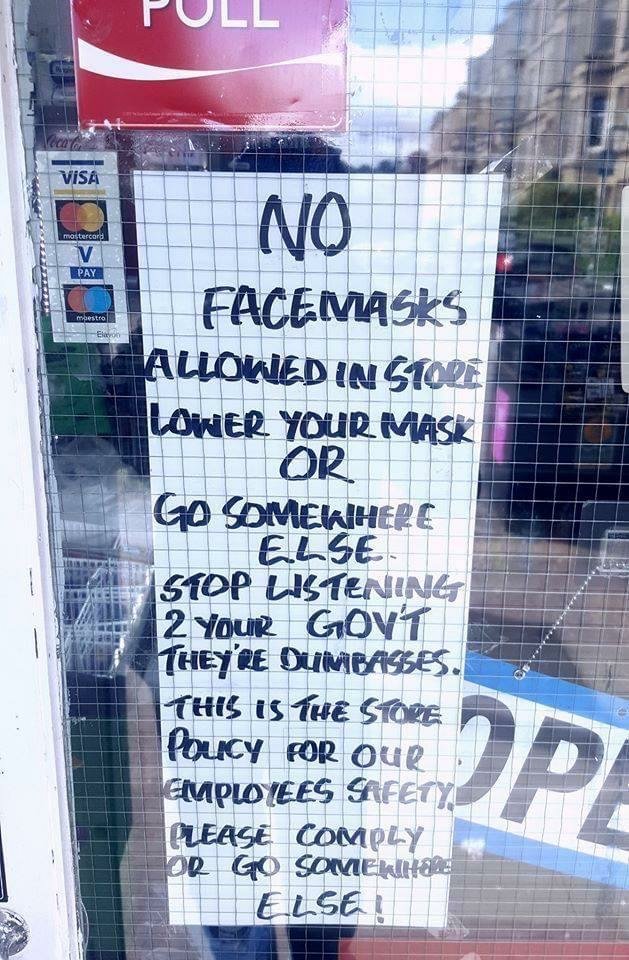 PULL
Coca-Cola
VISA
mastercard
V
PAY
maestro
Elavon
NO
FACEMASKS
ALLOWED IN STORE
LOWER YOUR MASK
OR
GO SOMEWHERE
ELSE.
STOP LISTENING
2 YOUR GOV'T
THEY'RE DUMBASSES.
THIS IS THE STORE
POLICY FOR OUR
EMPLOYEES SAFETY.
PLEASE COMPLY
OR GO SOMEWHERE
ELSE!
OPE